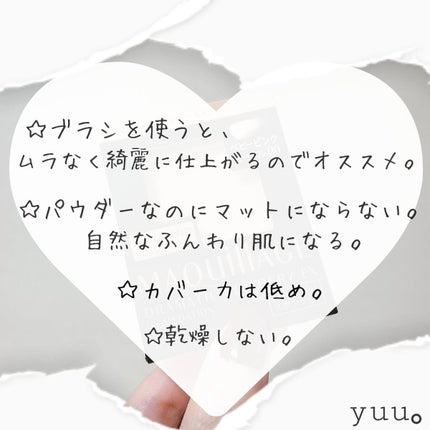 ☆ブラシを使うと、
ムラなく綺麗に仕上がるのでオススメ。
☆パウダーなのにマットにならない。
自然なふんわり肌になる。
MAQuillAGE
☆カバー力は低め。
☆乾燥しない。
yuu。